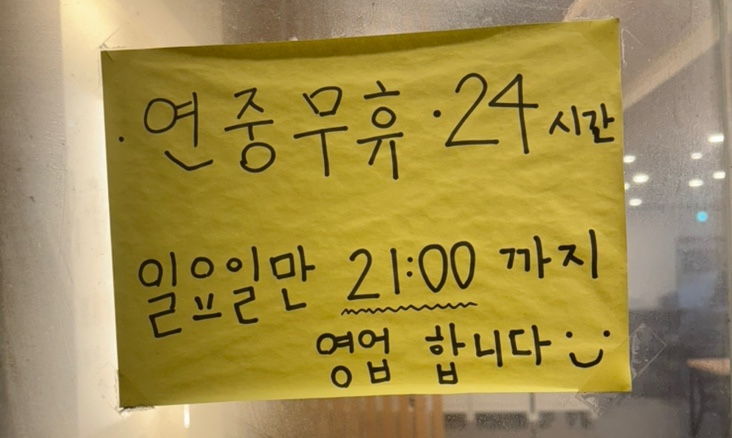 ·연중무휴·24시간
일요일만 21:00 까지
영업 합니다 :)